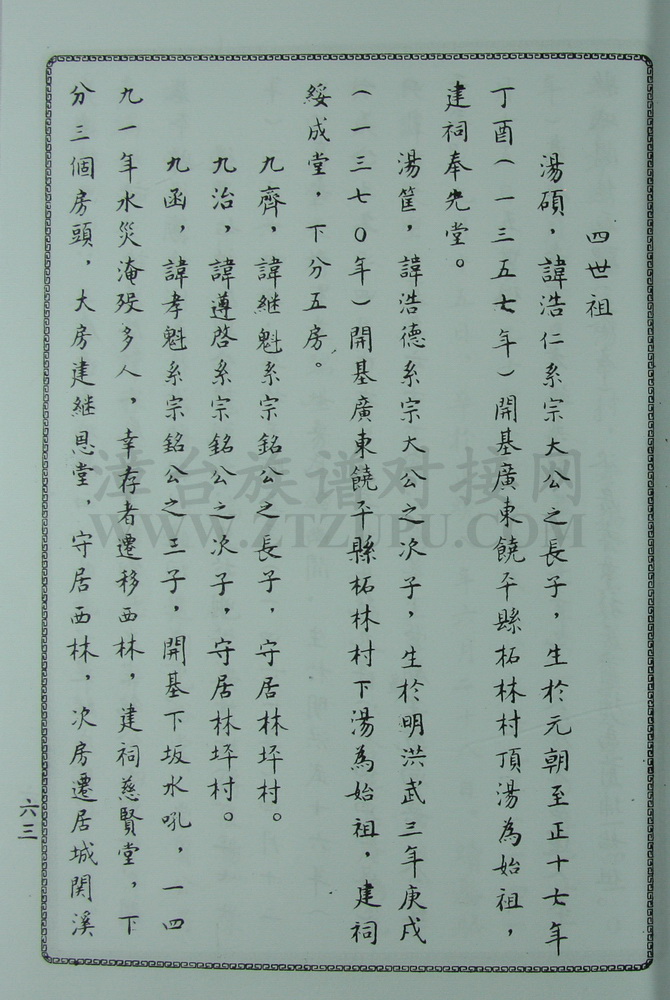 四世祖
湯碩，諱浩仁系宗大公之長子，生於元朝至正十七年
丁酉（一三五七年）開基廣東饒平縣柘林村頂湯為始祖，
建祠奉先堂。
湯筐，諱浩德系宗大公之次子，生於明洪武三年庚戌
（一三七〇年）開基廣東饒平縣柘林村下湯為始祖，建祠
綏成堂，下分五房。
九齊，諱継魁系宗銘公之長子，守居林坪村。
九治，諱遵啓系宗銘公之次子，守居林坪村。
九函，諱孝魁系宗銘公之三子，開基下坂水吼，一四
九一年水災淹殁多人，幸存者遷移西林，建祠慈賢堂，下
分三個房頭，大房建継恩堂，守居西林，次房遷居城関溪
六三
漳台族谱对接网
WWW.ZTZUPU.COM